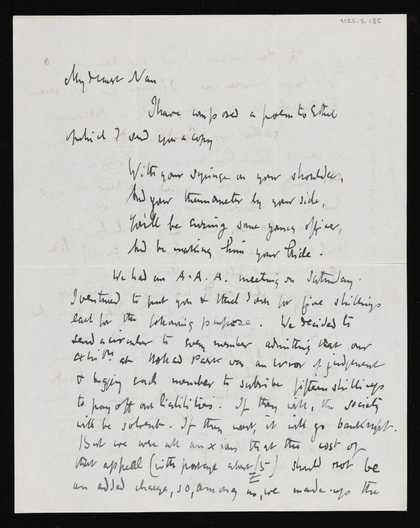 My dearest Nan
I have composed a poem to Ethel
of which I send you a copy
With your syringe on your shoulder,
And your thermometer by your side,
You'll be curing some young officer,
And be making him your Pride.
We had an A.A.A. meeting on Saturday.
I ventured to put you & Ethel down for five shillings
each for the following purpose. We decided to
send a circular to every member admitting that our
exhibn at Holland Park was an error of judgement
& begging each member to subscribe fifteen shillings
to pay off our liabilities. If they will, the society
will be solvent. If they won't, it will go bankrupt.
But we were all anxious that the cost of
that appeal (with postage about £5) should not be
an added charge, so, among us, we made up the